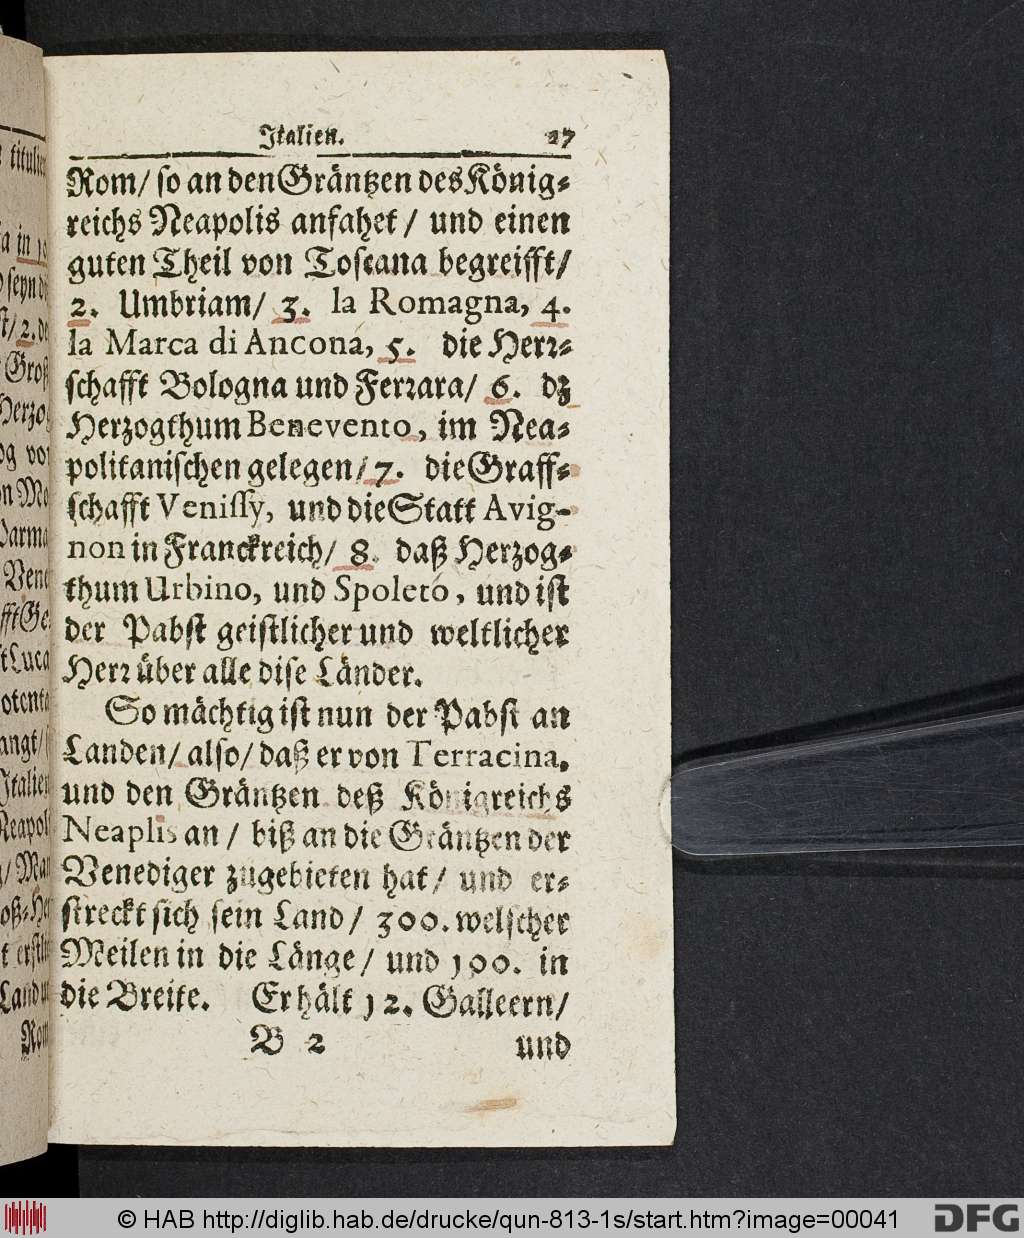 Italien. 27
Rom/ so an den Gräntzen des König⸗
reichs Neapolis anfahet/ und einen
guten Theil von Toscana begreifft/
2. Umbriam/ 3. la Romagna, 4.
la Marca di Ancona, 5. die Herr⸗
schafft Bologna und Ferrara/ 6. dz
Herzogthum Benevento, im Nea⸗
politanischen gelegen/ 7. die Graff⸗
schafft Venissy, und die Statt Avig-
non in Franckreich/ 8. daß Herzog⸗
thum Urbino, und Spoleto, und ist
der Pabst geistlicher und weltlicher
Herr über alle dise Länder.
So mächtig ist nun der Pabst an
Landen/ also/ daß er von Terracina.
und den Gräntzen deß Königreichs
Neaplis an/ biß an die Gräntzen der
Venediger zugebieten hat/ und er⸗
streckt sich sein Land/ 300. welscher
Meilen in die Länge/ und 100. in
die Breite. Er hält 12. Galleern/
B 2 und
titulie
a in
seyn
2.
Groß
Herzo
og vo
Parma
Vene
Luca
otenta
angt/
Italien
Neapol
Land
Rom
© HAB http://diglib.hab.de/drucke/qun-813-1s/start.htm?image=00041
DFG